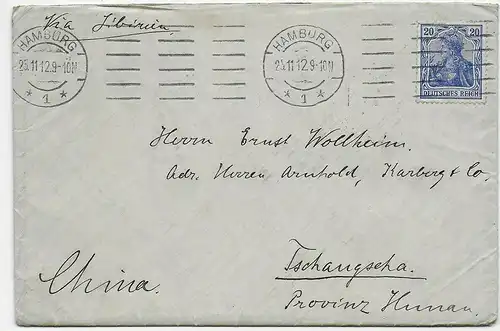 Via Sibirien
HAMBURG
25.11.12.9-10N
* 1 *
HAMBURG
25.11.12.9-10N
* 1 *
20 20
DEUTSCHES REICH
Herrn Ernst Wollheim.
Adr. Herren Arnhold, Karberg & Co.
Tschangscha.
China.
Provinz Hunan.